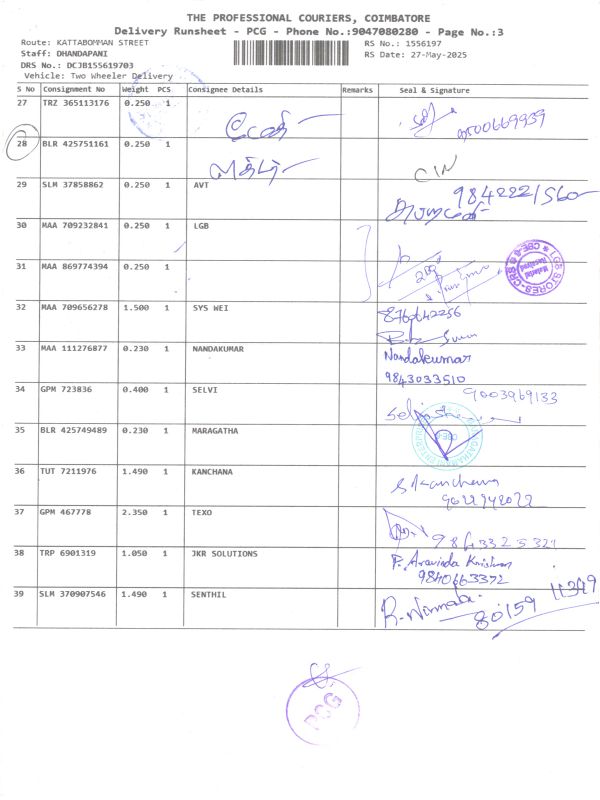 THE PROFESSIONAL COURIERS, COIMBATORE
Delivery Runsheet - PCG - Phone No.:9047080280 - Page No.:3
Route: KATTABOMMAN STREET RS No.: 1556197
Staff: DHANDAPANI RS Date: 27-May-2025
DRS No.: DCJB155619703
Vehicle: Two Wheeler Delivery
S No Consignment No Weight PCS Consignee Details Remarks Seal & Signature
27 TRZ 365113176 0.250 1
28 BLR 425751161 0.250 1
29 SLM 37858862 0.250 1 AVT
30 MAA 709232841 0.250 1 LGB
31 MAA 869774394 0.250 1
LGB STORES-CRS CBE-6
Material Received
32 MAA 709656278 1.500 1 SYS WEI
33 MAA 111276877 0.230 1 NANDAKUMAR Nandakumar
9843033510
34 GPM 723836 0.400 1 SELVI 9003969133
35 BLR 425749489 0.230 1 MARAGATHA
36 TUT 7211976 1.490 1 KANCHANA S Kanchana
37 GPM 467778 2.350 1 TEXO
38 TRP 6901319 1.050 1 JKR SOLUTIONS P. Aravinda Krishnan
9840663372
39 SLM 370907546 1.490 1 SENTHIL R. Nirmala. 80159 11349
PCG